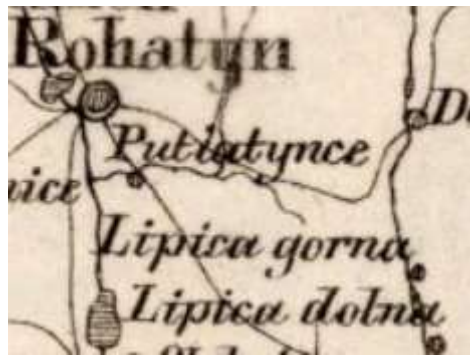 Rohatyn
Putiatynce
Lipica gorna
Lipica dolna